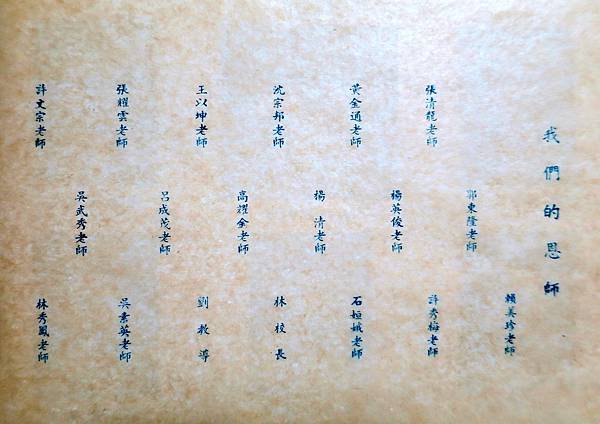 我們的恩師
張清龍老師
黃金通老師
沈宗邦老師
王以坤老師
張耀雲老師
許文宗老師
郭東隆老師
楊英俊老師
楊清老師
高耀金老師
呂成茂老師
吳武秀老師
賴美珍老師
許秀梅老師
石垣娥老師
林校長
劉教導
吳素英老師
林秀鳳老師